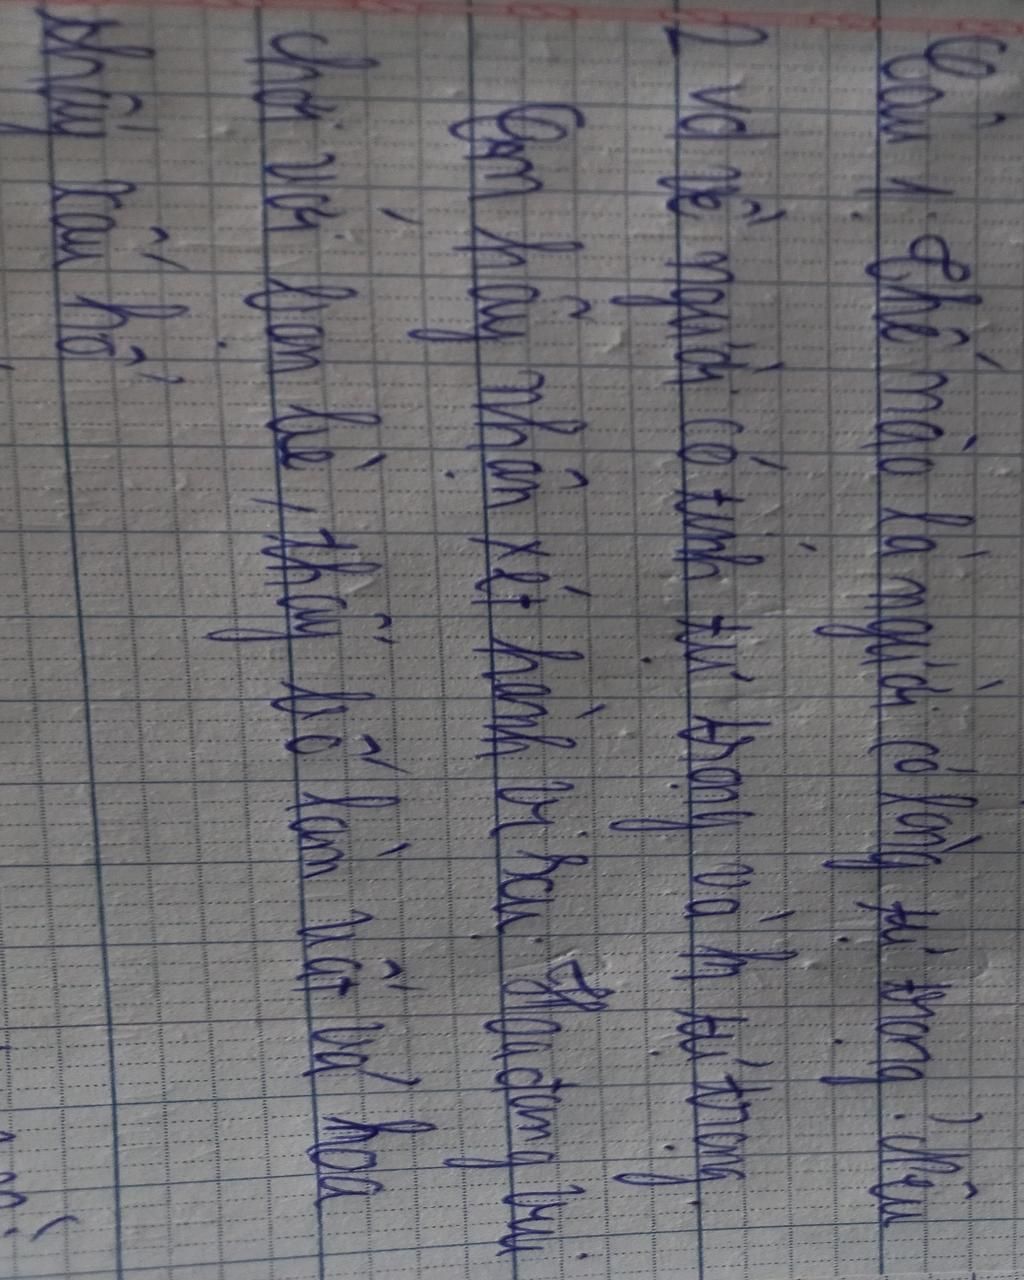 Câu 1. Thế nào là người có lòng tự trọng. Nêu
2 vd về người có tính tự trọng và k tự trọng.
Em hãy nhận xét hành vi sau. Hoa đang vui
chơi với bạn bè, thấy bố làm vất vả hoa
thấy xấu hổ